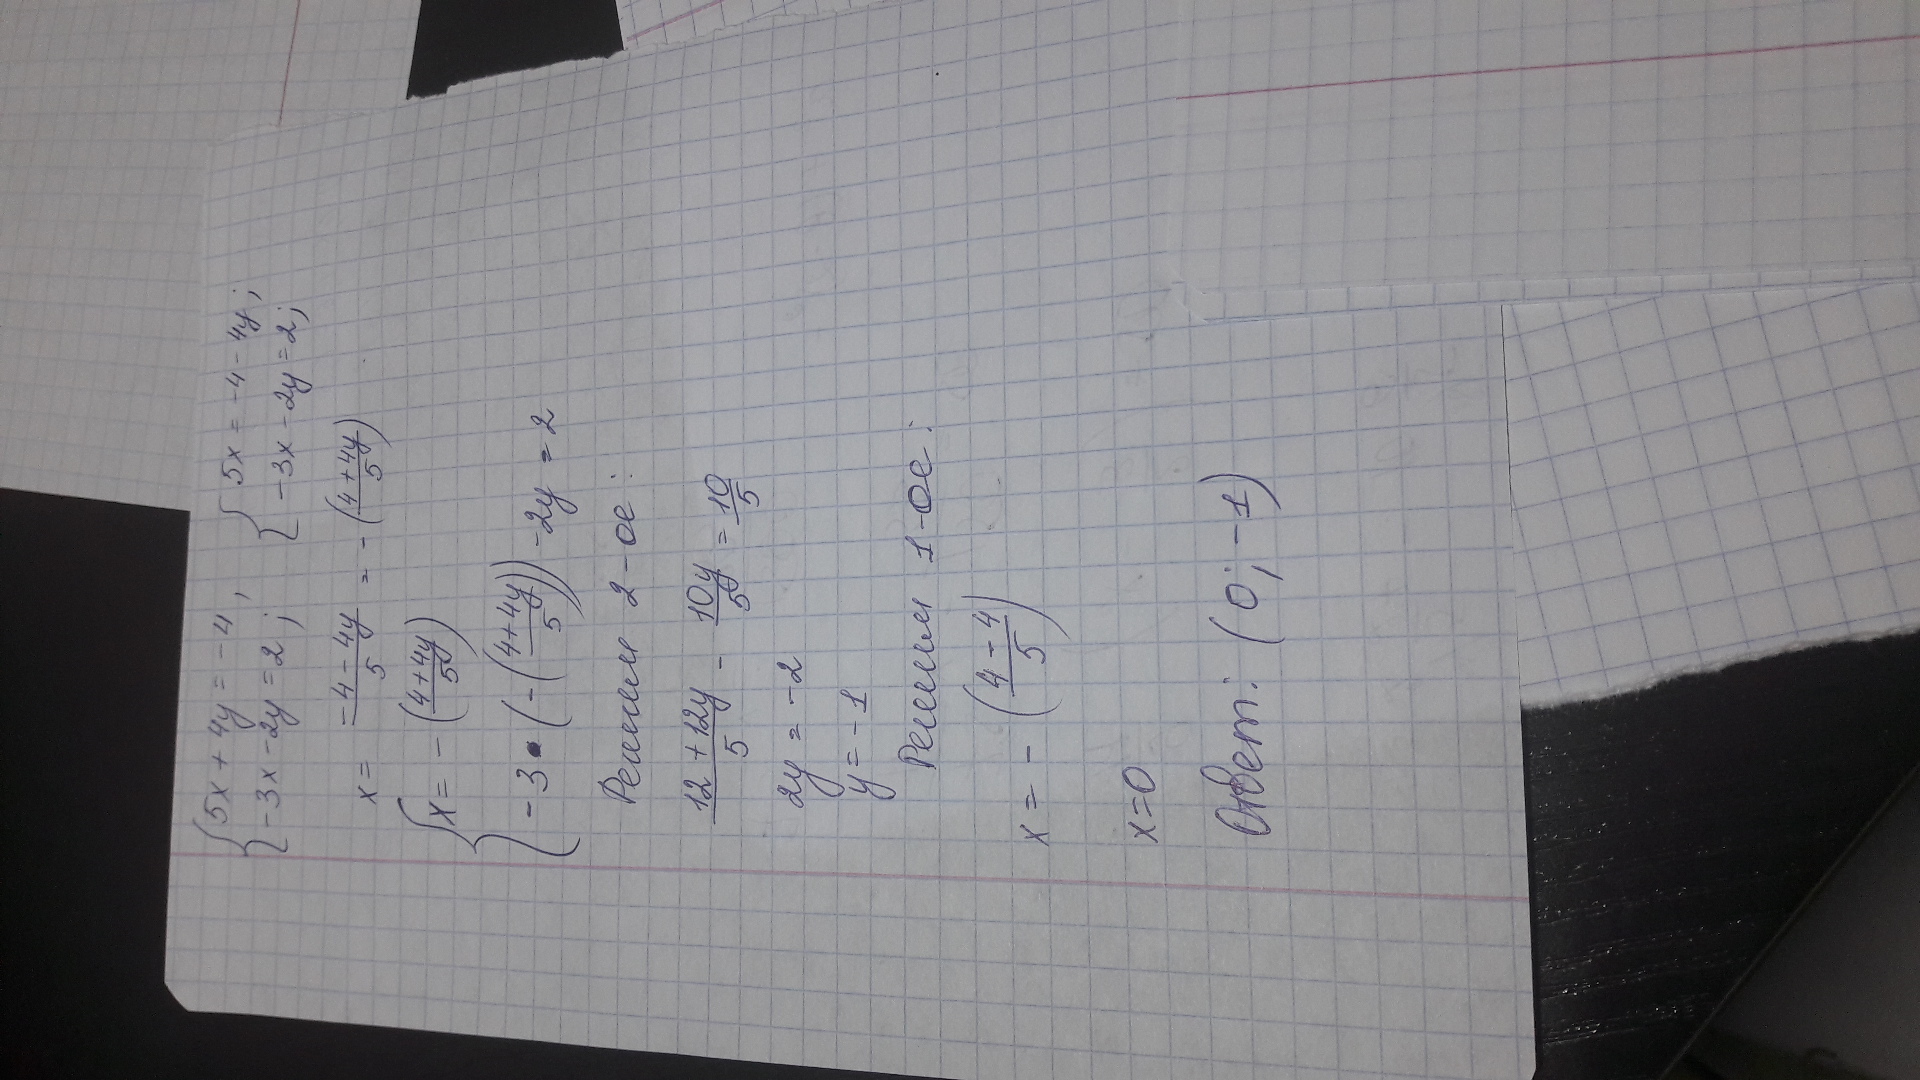 { 5x + 4y = -4, { 5x = -4 - 4y;
-3x - 2y = 2; -3x - 2y = 2;
x = (-4 - 4y)/5 = - ((4 + 4y)/5)
{ x = - ((4 + 4y)/5)
-3 · (-((4 + 4y)/5)) - 2y = 2
Решим 2-ое:
(12 + 12y)/5 - 10y/5 = 10/5
2y = -2
y = -1
Решим 1-ое:
x = - ((4 - 4)/5)
x = 0
Ответ: (0; -1)